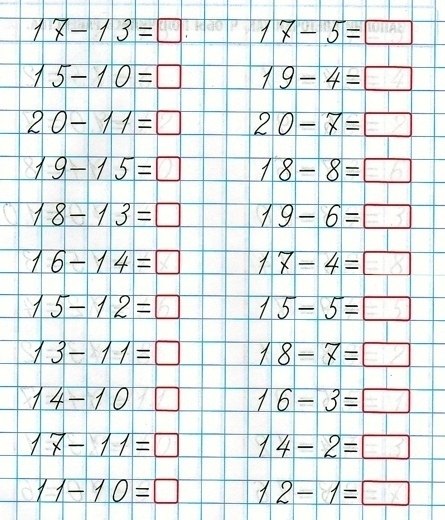 17-13= 17-5=
15-10= 19-4=
20-11= 20-7=
19-15= 18-8=
18-13= 19-6=
16-14= 17-4=
15-12= 15-5=
13-11= 18-7=
14-10 16-3=
17-11= 14-2=
11-10= 12-1=